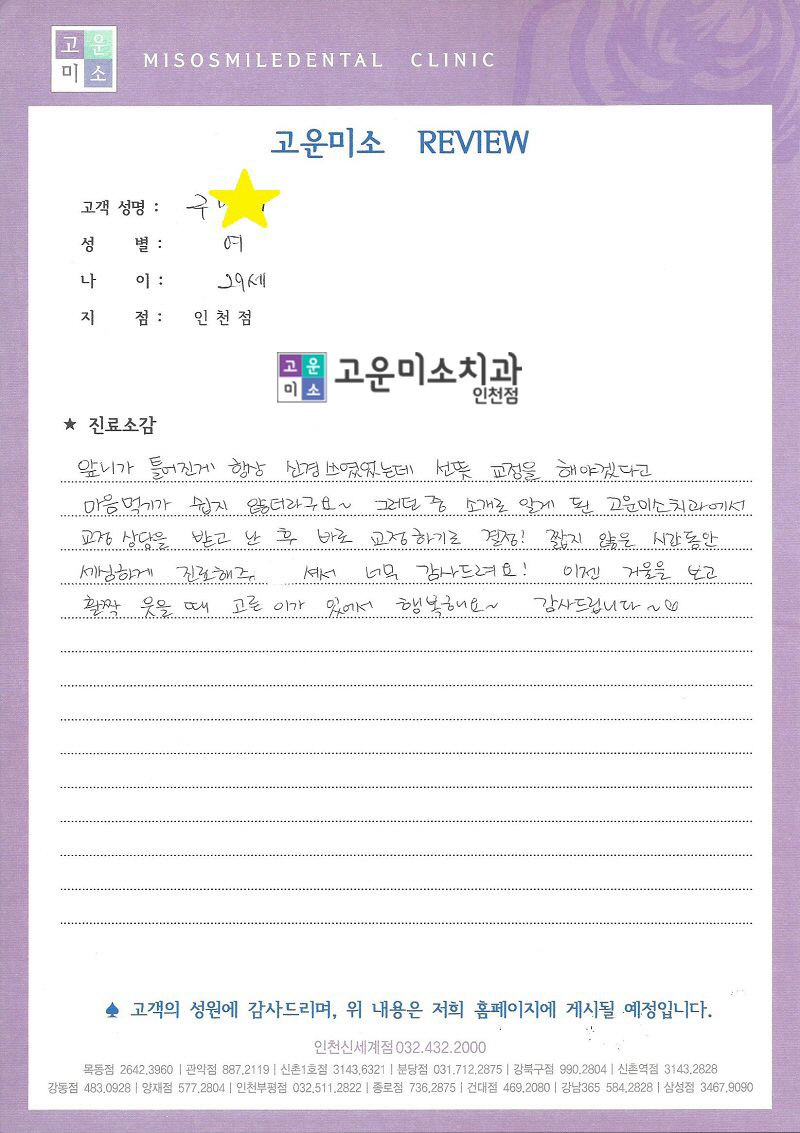 고운
미소
MISOSMILEDENTAL CLINIC
고운미소 REVIEW
고객 성명 : 주
성 별 : 여
나 이 : 29세
지 점 : 인천점
고운
미소
고운미소치과
인천점
★ 진료소감
앞니가 틀어진게 항상 신경쓰였었는데 선뜻 교정을 해야겠다고
마음먹기가 쉽지 않더라구요~ 그러던 중 소개로 알게 된 고운미소치과에서
교정 상담을 받고 난 후 바로 교정하기로 결정! 짧지 않은 시간동안
세심하게 진료해주셔서 너무 감사드려요! 이젠 거울을 보고
활짝 웃을 때 고른 이가 있어서 행복해요~ 감사드립니다~♡
♠ 고객의 성원에 감사드리며, 위 내용은 저희 홈페이지에 게시될 예정입니다.
인천신세계점 032.432.2000
목동점 2642.3960 | 관악점 887.2119 | 신촌1호점 3143.6321 | 분당점 031.712.2875 | 강북구점 990.2804 | 신촌역점 3143.2828
강동점 483.0928 | 양재점 577.2804 | 인천부평점 032.511.2822 | 종로점 736.2875 | 건대점 469.2080 | 강남365 584.2828 | 삼성점 3467.9090